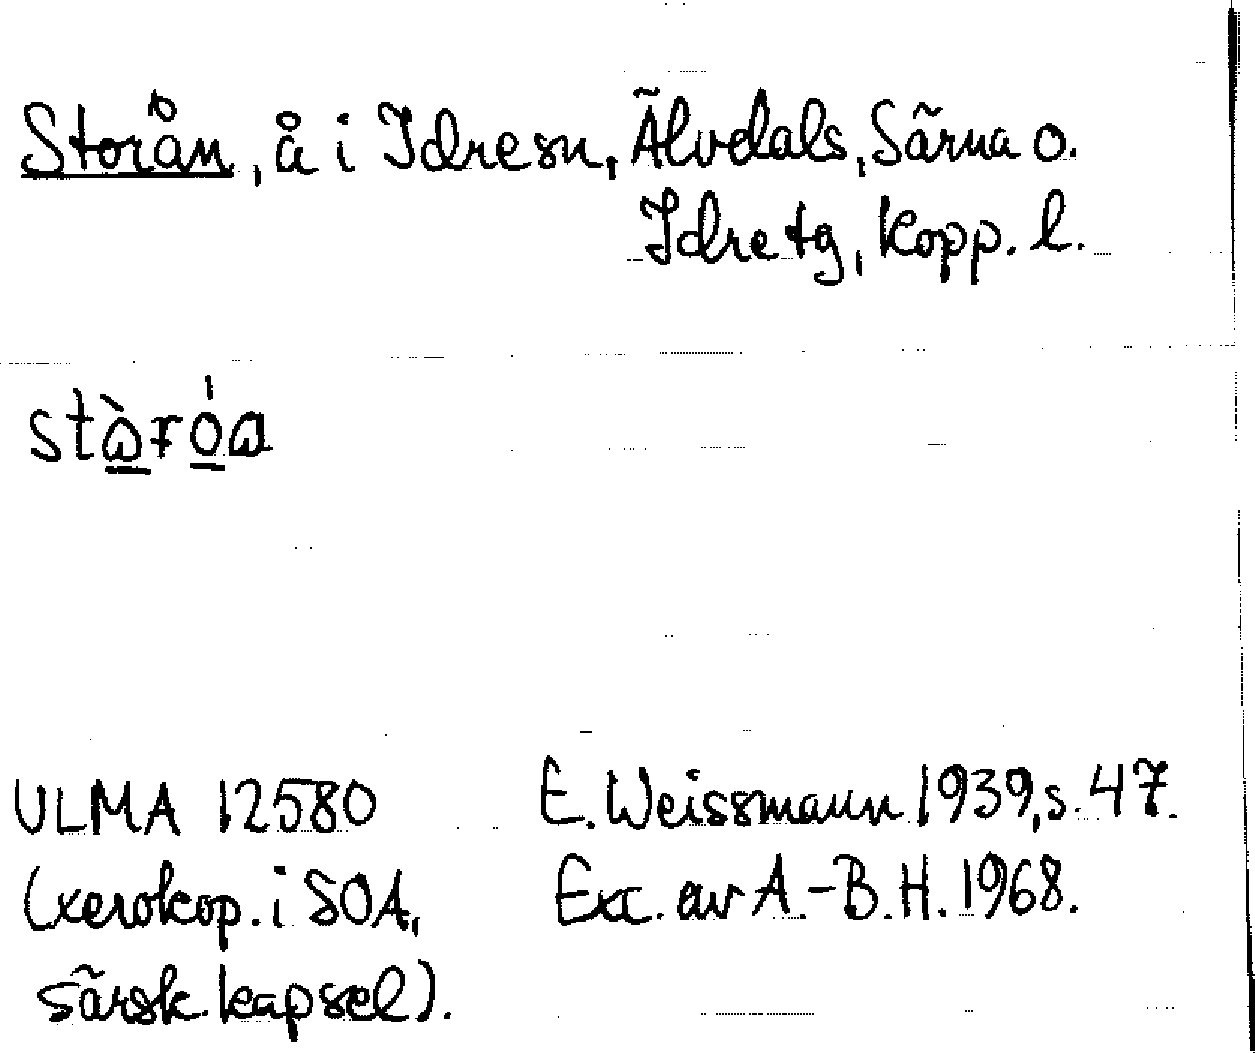 Storån, å i Idresn, Älvdals, Särna o.
Idre tg, Kopp. l.
ULMA 12580
E. Weissmann 1939, s. 47.
(xerokop. i SOA,
Exc. av A.-B. H. 1968.
särsk. kapsel).